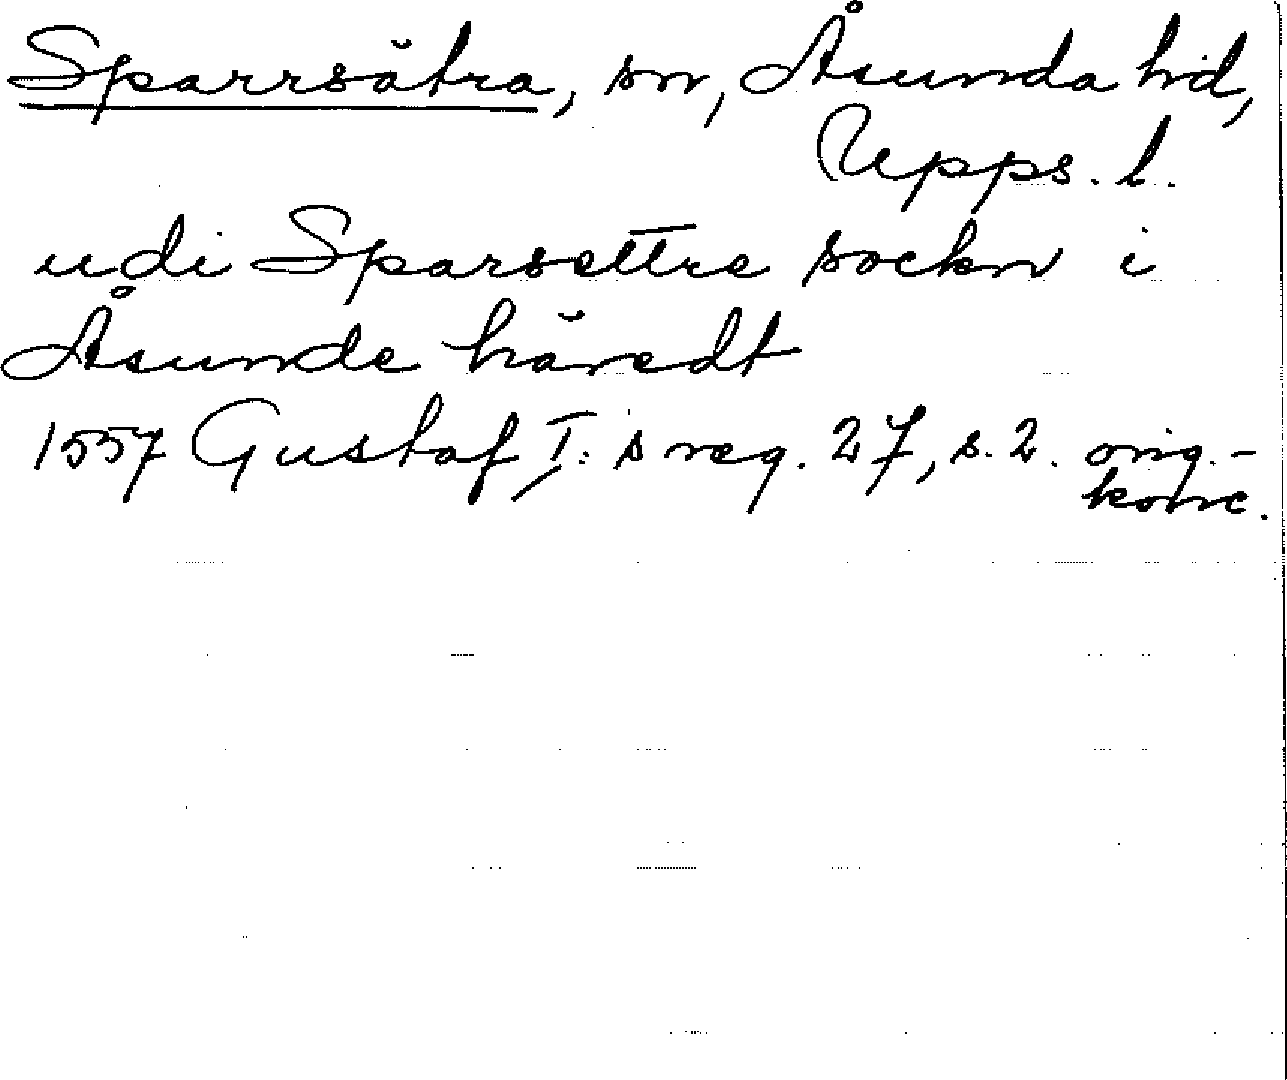 Sparrsätra, sn, Åsunda hd,
Upps. l.
udi Sparsettre sockn i
Åsunde häredt
1557 Gustaf I:s reg. 27, s. 2. orig.-
konc.